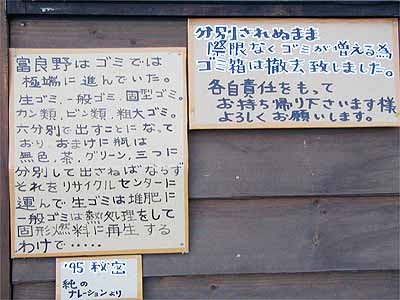 富良野はゴミでは
極端に進んでいた。
生ゴミ、一般ゴミ、固型ゴミ。
カン類、ビン類、粗大ゴミ。
六分別で出すことになって
おり、おまけに瓶は
無色、茶、グリーン、三つに
分別して出さねばならず
それをリサイクルセンターに
運んで、生ゴミは堆肥に
一般ゴミは熱処理をして
固形燃料に再生する
わけで・・・・・
'95 秘密
純の
ナレーションより
分別されぬまま
際限なくゴミが増える為
ゴミ箱は撤去致しました。
各自責任をもって
お持ち帰り下さいます様
よろしくお願いします。